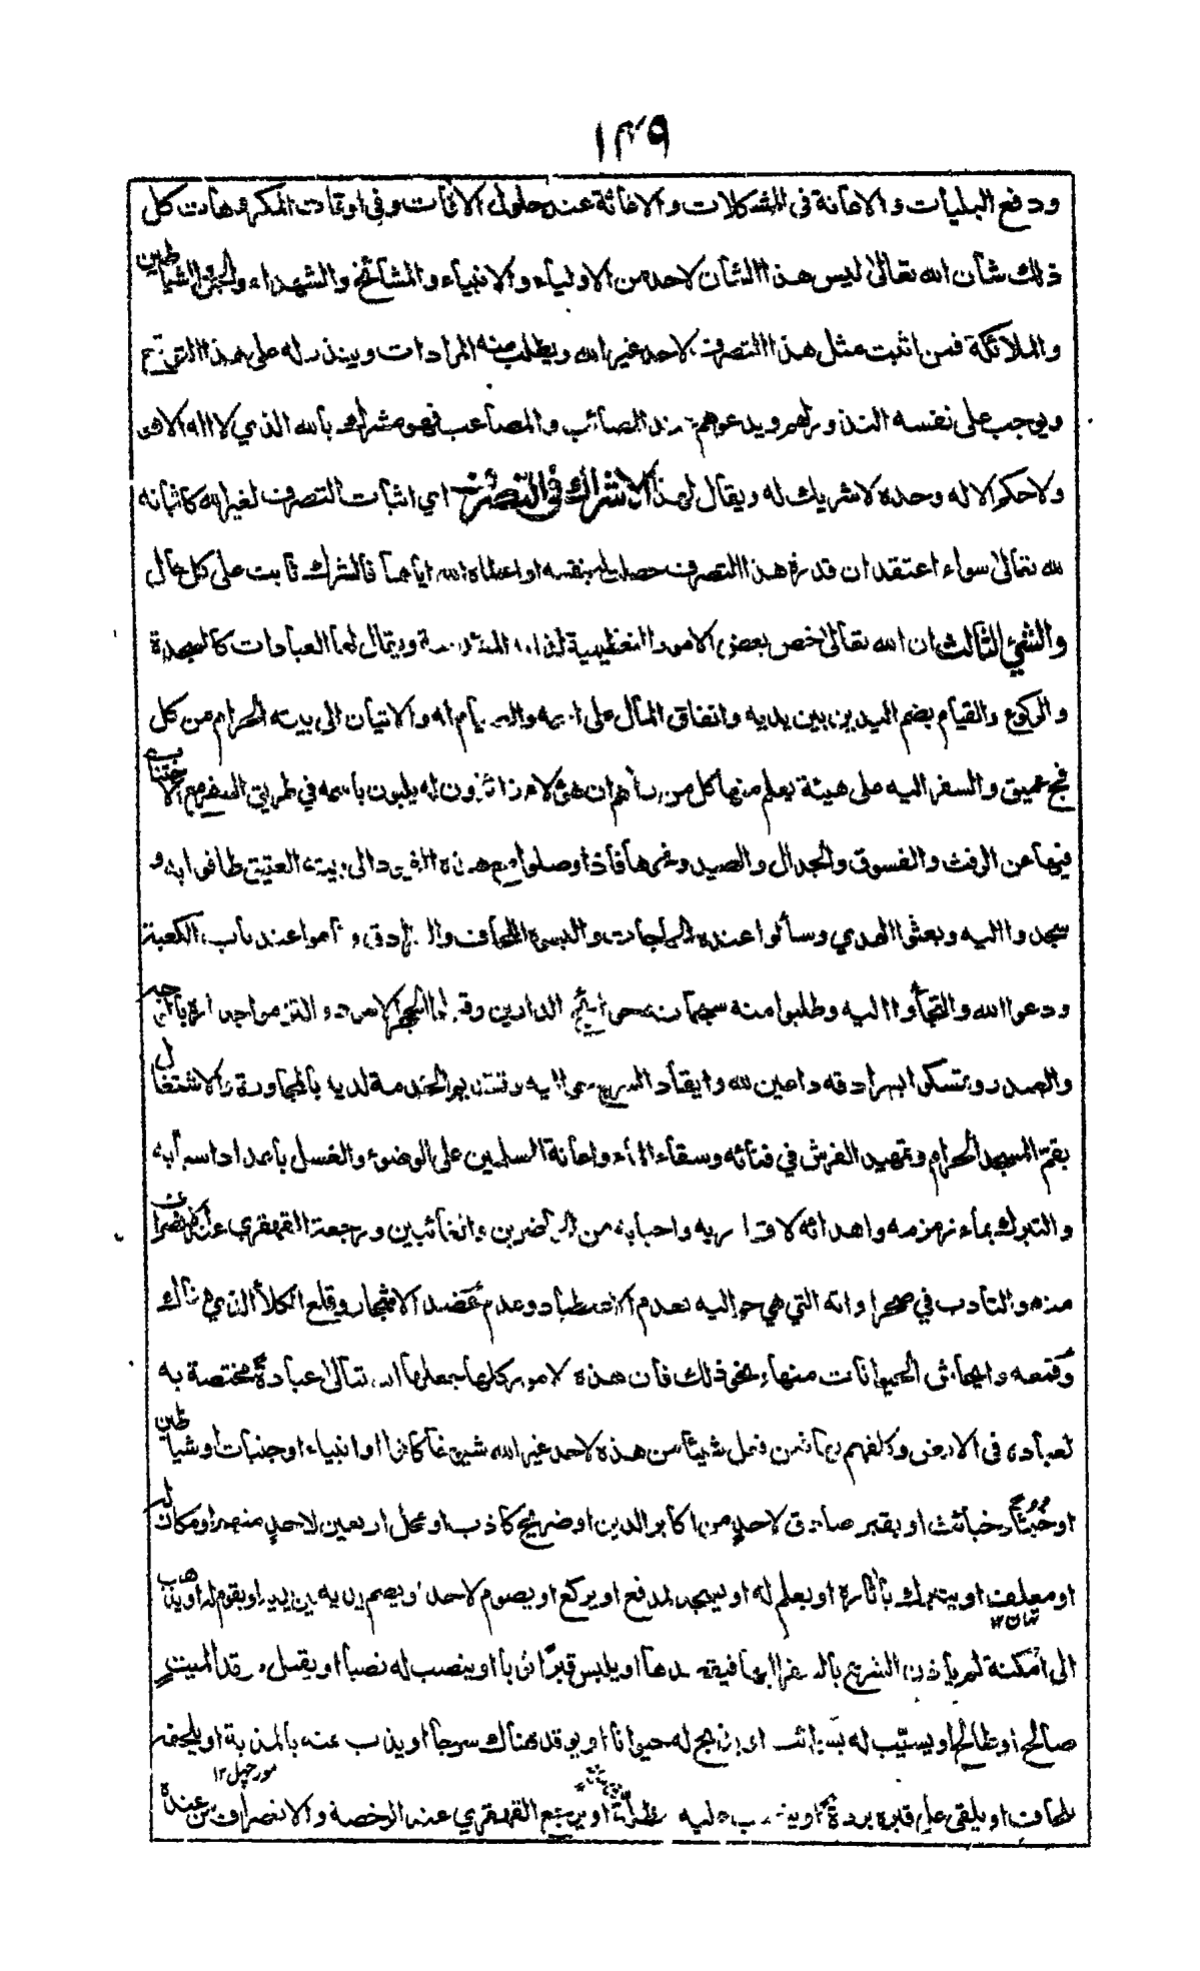 ١٣٩
ودفع البليات والاعانة فى المشكلات والاغاثة عند حلول الافات وفى اوقات المكروهات كل
ذلك شان الله تعالى ليس هذا الشان لاحد من الاولياء والانبياء والمشائخ والشهداء والجن والشياطين
والملائكة فمن اثبت مثل هذا التصرف لاحد غير الله ويطلب منه المرادات وينذر له على هذا التوقع
ويوجب على نفسه النذور لهم ويدعوهم عند المصائب والمصاعب فهو مشرك بالله الذي لا اله الا هو
ولا حكم الا له وحده لا شريك له ويقال لهذا الاشراك فى التصرف اي اثبات التصرف لغير الله كاثباته
لله تعالى سواء اعتقد ان قدرة هذا التصرف حصلت له بنفسه او اعطاه الله اياها فالشرك ثابت على كل حال
والشئ الثالث ان الله تعالى خص بعض الامور التعظيمية لذاته المقدسة ويقال لها العبادات كالسجدة
والركوع والقيام بضم اليدين بين يديه وانفاق المال على اسمه والصيام له والاتيان الى بيته الحرام من كل
فج عميق والسفر اليه على هيئة يعلم منها كل من رأهم ان هؤلاء زائرون له يلبون باسمه في طريق السفر مع الاجتناب
فيها عن الرفث والفسوق والجدال والصيد ونحوها فاذا وصلوا مع هذه القيود الى بيته العتيق طافوا به و
سجدوا اليه وبعثوا الهدي وسألوا عنده الحاجات والبسوه اللحاف وقاموا عند باب الكعبة
ودعوا الله والتجأوا اليه وطلبوا منه حوائج الدارين وقبلوا الحجر الاسود والتزموا جداره
والصدر وتمسكوا بسرادقه داعين لله وايقاد السرج حواليه والخدمة لديه بالمجاورة والاشتغال
بقم المسجد الحرام وتمهيد الفرش في فنائه وسقاء الماء واعانة المسلمين على الوضوء والغسل بامداد اسبابه
والتبرك بماء زمزمه واهدائه لاقاربه واحبابه من الحاضرين والغائبين ورجعة القهقري عند الانصراف
منه والتادب في صحراواته التي هي حواليه بعدم الاصطياد وعدم عضد الاشجار وقلع الكلأ الذي هنالك
وايحاش الحيوانات منها ونحو ذلك فان هذه الامور كلها جعلها الله تعالى عبادة مختصة به
لعباده فى الارض وكلفهم بها فمن فعل شيئا من هذه لاحد غير الله شيخا كان او انبياء او جنيات او شياطين
او خبيثا وخبائث او بقبر صادق لاحد من اكابر الدين او ضريح كاذب او محل اربعين لاحد منهم او مكان
او معلف او يتبرك باثاره او بعلم له او يسجد لمدفع او يركع او يصوم لاحد او يضم يديه بين يديه او يقوم له او يذهب
الى امكنة لم يأذن الشرع بالسفر اليها او يلبس قبرا ثيابا او ينصب له نصبا او يقبل مرقد الميت
صالح او طالح او يسيب له سوائب او يذبح له حيوانا او يوقد هناك سرجا او يذب عنه بالمذبة او يلحفه
مورچهل ١٢
لحاف او يلقى على قبره بردة او يضرب عليه او يرجع القهقري عند الرخصة والانصراف من عنده